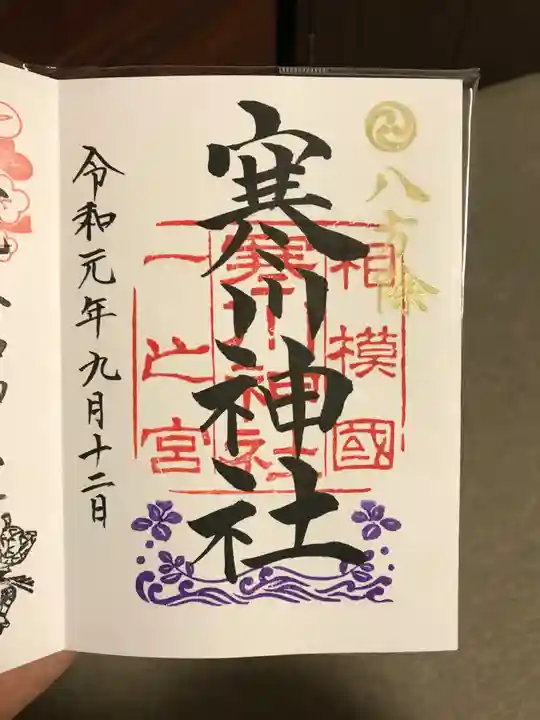 八方除
寒川神社
相模國
寒川神社
一之宮
令和元年九月十二日